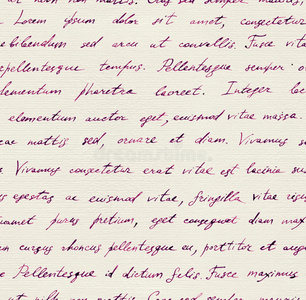 ut nibh non mattis. Cras sed semper mauris,
Lorem ipsum dolor sit amet, consectetur
bibendum sed arcu ut convallis. Fusce vita
pellentesque tempus. Pellentesque semper
elementum pharetra laoreet. Integer
elementum auctor eget, euismod vitae massa.
mattis sed, ornare et diam. Vivamus
Vivamus consectetur erat vitae est lacinia
egestas ac euismod vitae, fringilla vitae
purus pretium, eget consequat diam
cursus rhoncus pellentesque eu, porttitor et
Pellentesque id dictum felis. Fusce maximus
ut nibh non mattis. Cras sed semper mauris